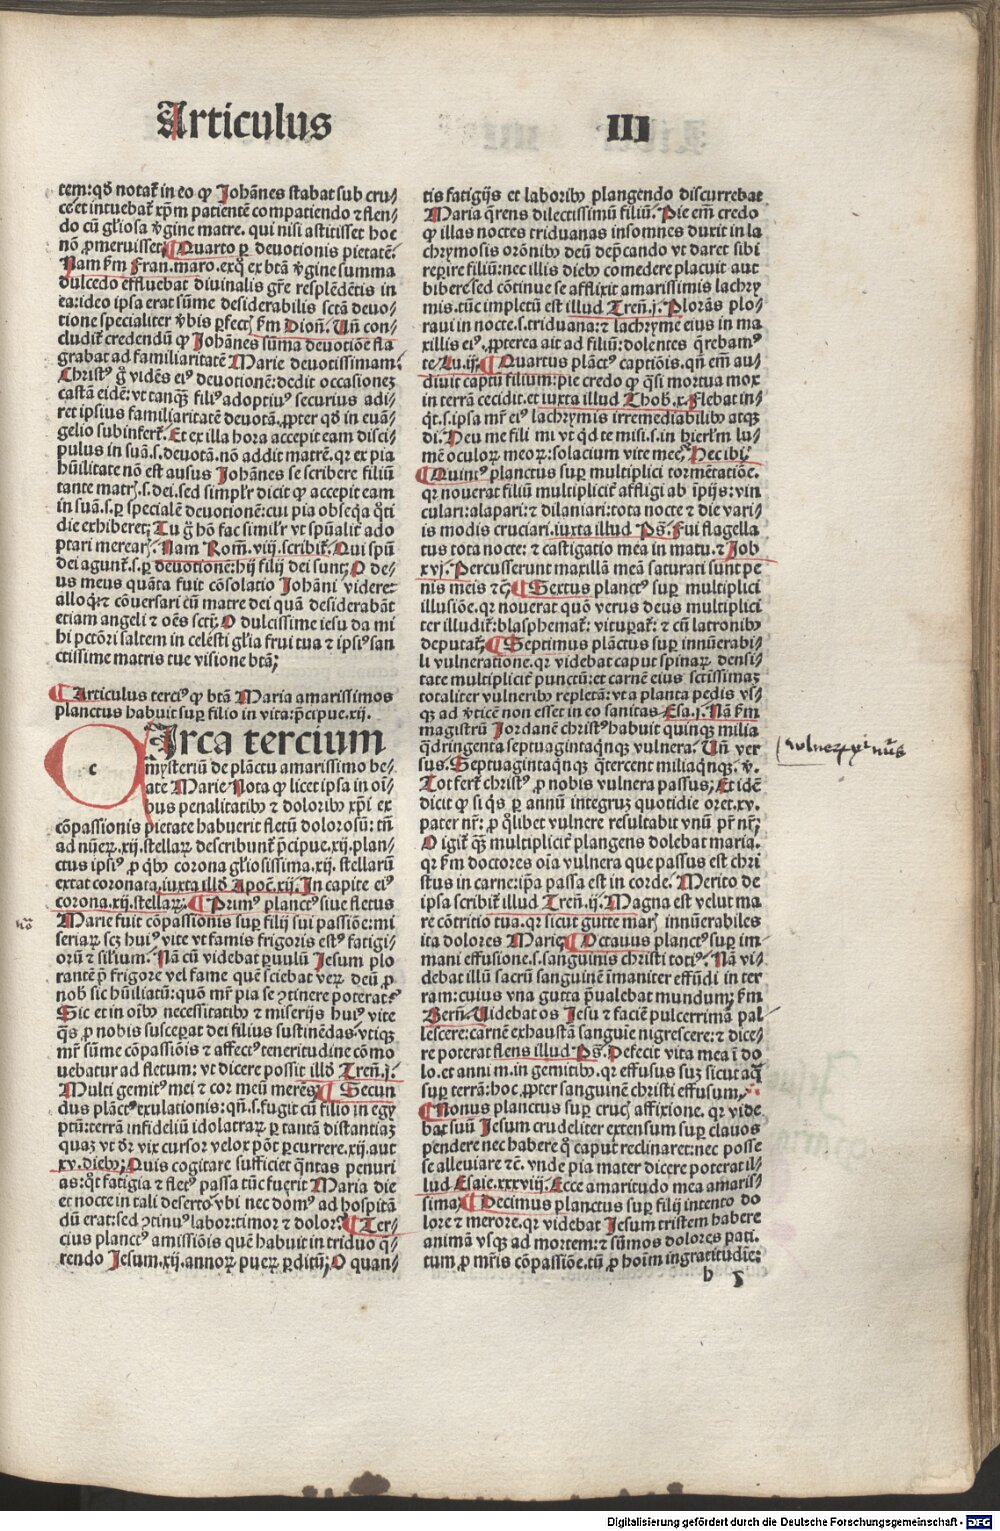 Articulus III
tem:qd̛ notat᷑ in eo ꝙ Johānes stabat sub cru⸗
ce et intuebat᷑ xp̄m patientē compatiendo ⁊ flen⸗
do cū gl̓iosa v̓gine matre. qui nisi astitisset hoc
nō ꝓmeruisset. ¶ Quarto ꝑ deuotionis pietatē.
Nam ẜm Fran. maro. exq̄ ex btā v̓gine summa
dulcedo effluebat diuinalis gr̄e resplēdētis in
ea: ideo ipsa erat sūme desiderabilis sctā deuo⸗
tione specialiter v̓bis ꝑfect̄ ẜm Dion̄. Uñ con⸗
cludit᷑ credendū ꝙ Johānes sūma deuotiōe fla
grabat ad familiaritatē Marie deuotissimam.
Christꝰ g̊ vidēs eiꝰ deuotionē: dedit occasionez
castā eidē: vt tanq̄ʒ filiꝰ adoptiuꝰ securius adi⸗
ret ipsius familiaritatē deuotā. ꝓpter qd̛ in euā⸗
gelio subinfert᷑. Et ex illa hora accepit eam disci⸗
pulus in suā. s. deuotā. nō addit matrē. qr ex pia
hūilitate nō est ausus Johānes se scribere filiū
tante matr̄. s. dei. sed simpl̓r dicit ꝙ accepit eam
in suā. s. ꝑ specialē deuotionē: cui pia obseq̄a q̊ti
die exhiberet; Tu g̊ hō fac simil̓r vt spūalit᷑ ado
ptari merear̄. Nam Rom̄. viij. scribit᷑. Qui spū
dei agunt᷑. s. ꝑ deuotionē: hij filij dei sunt; O de⸗
us meus quāta fuit cōsolatio Johāni videre
alloq̄ ⁊ cōuersari cū matre dei quā desiderabāt
etiam angeli ⁊ oēs sctī; O dulcissime iesu da mi
hi pctōri saltem in celesti gl̓ia frui tua ⁊ ipsiꝰ san
ctissime matris tue visione btā;
¶ Articulus terciꝰ ꝙ btā Maria amarissimos
planctus habuit suꝑ filio in vita: p̄cipue. xij.
Irca tercium
c
mysteriū de plāctu amarissimo be⸗
ate Marie Nota ꝙ licet ipsa in oī⸗
bus penalitatibꝰ ⁊ doloribꝰ xp̄i ex
cōpassionis pietate habuerit fletū dolorosū: tn̄
ad nūeꝝ. xij. stellaꝝ describunt᷑ p̄cipue. xij. plan⸗
ctus ipsiꝰ ꝓ q̄bꝰ corona gl̓iosissima. xij. stellarū
extat coronata. iuxta illd̛ Apoc̄. xij. In capite eiꝰ
corona. xij. stellaꝝ. ¶ Primꝰ planctꝰ siue fletus
Marie fuit cōpassionis suꝑ filij sui passiōe: mi
seriaꝝ scʒ huiꝰ vite vt famis frigoris estꝰ fatigi⸗
orū ⁊ siliūm. Nā cū videbat ꝑuulū Jesum plo
rantē p̄ frigore vel fame quē sciebat veꝝ deū ꝓ
nob̄ sic hūiliatū: quō mr̄ pia se ꝯtinere poterat?
Sic et in oībꝰ necessitatibꝰ ⁊ miserijs huiꝰ vite
q̄s ꝓ nobis susceꝑat dei filius sustinēdas vtiqꝫ
mr̄ sūme cōpassiōis ⁊ affectꝰ teneritudine cōmo
uebatur ad fletum: vt dicere possit illd̛ Tren̄. j.
Multi gemitꝰ mei ⁊ cor meū merēs. ¶ Secun
dus plāctꝰ exulationis: qn̄. s. fugit cū filio in egy
ptū: terrā infideliū idolatraꝝ ꝑ tantā distantiaʒ
quaʒ vt dr̄ vix cursor velox pōt ꝑcurrere. xij. aut
xv. diebꝰ; Quis cogitare sufficiet q̄ntas penuri
as: q̊t fatigia ⁊ fletꝰ passa tūc fuerit Maria die
et nocte in tali deserto vbi nec domꝰ ad hospitā
dū erat: sed ꝯtinuꝰ labor: timor ⁊ dolor. ¶ Ter⸗
cius planctꝰ amissiōis quē habuit in triduo q̄⸗
rendo Jesum. xij. annoꝝ pueꝝ ꝑditū; O quan⸗
tis fatigijs et laboribꝰ plangendo discurrebat
Maria q̄rens dilectissimū filiū. Pie em̄ credo
ꝙ illas noctes triduanas insomnes duxit in la
chrymosis orōnibꝰ deū dep̄cando vt daret sibi
reꝑire filiū: nec illis diebꝰ comedere placuit aut
bibere sed cōtinue se afflixit amarissimis lachry
mis. tūc impletū est illud Tren̄. j. Plorās plo⸗
raui in nocte. s. triduana: ⁊ lachryme eius in ma
xillis eiꝰ. ꝓpterea ait ad filiū: dolentes q̄rebamꝰ
te. Lu. ij. ¶ Quartus plāctꝰ captiōis. qn̄ em̄ au⸗
diuit captū filium: pie credo ꝙ q̄si mortua mox
in terrā cecidit. et iuxta illud Thob̄. x. Flebat in⸗
q̊t. s. ipsa mr̄ eiꝰ lachrymis irremediabilibꝰ atqꝫ
di. Heu me fili mi vt qd te misi. s. in hierl̓m lu⸗
mē oculoꝝ meoꝝ: solacium vite mee. Hec ibi;
¶ Quintꝰ planctus suꝑ multiplici tormētatiōe.
qr nouerat filiū multiplicit᷑ affligi ab īpijs: vin
culari: alapari: ⁊ dilaniari: tota nocte ⁊ die vari⸗
is modis cruciari. iuxta illud Ps̄. Fui flagella
tus tota nocte: ⁊ castigatio mea in matu. ⁊ Job
xvj. Percusserunt maxillā meā saturati sunt pe
nis meis ⁊c̄; ¶ Sextus planctꝰ suꝑ multiplici
illusiōe. qr nouerat quō verus deus multiplici
ter illudit᷑: blasphemat᷑: vituꝑat᷑: ⁊ cū latronibꝰ
deputat᷑; ¶ Septimus plāctus suꝑ innūerabi⸗
li vulneratione. qr videbat caput spinaꝝ densi⸗
tate multiplicit᷑ punctū: et carnē eius sctissimaʒ
totaliter vulneribꝰ repletā: vt a planta pedis vs⸗
qꝫ ad v̓ticē non esset in eo sanitas Esa. j. Nā ẜm
magistrū Jordanē christꝰ habuit quinqꝫ milia
q̄dringenta septuagintaq̄nqꝫ vulnera. Uñ ver
sus. Septuagintaq̄nqꝫ q̄tercent miliaq̄nqꝫ. v̓.
Tot fert᷑ christꝰ ꝓ nobis vulnera passus; Et idē
dicit ꝙ si q̄s ꝑ annū integrūʒ quotidie oret. xv.
pater nr̄: ꝓ q̊libet vulnere resultabit vnū pr̄ nr̄;
O igit᷑ q̄ʒ multiplicit᷑ plangens dolebat maria.
qr ẜm doctores oīa vulnera que passus est chri
stus in carne: ip̄a passa est in corde. Merito de
ipsa scribit᷑ illud Tren̄. ij. Magna est velut ma
re cōtritio tua. qr sicut gutte mar̄ innūerabiles
ita dolores Marie. ¶ Octauus planctꝰ suꝑ im⸗
mani effusione. s. sanguinis christi totiꝰ. Nā vi⸗
debat illū sacrū sanguinē īmaniter effūdi in ter
ram: cuius vna gutta p̄ualebat mundum; ẜm
Bern̄. Uidebat os Jesu ⁊ faciē pulcerrimā pal⸗
lescere: carnē exhaustā sanguīe nigrescere: ⁊ dice⸗
re poterat flens illud Ps̄. Defecit vita mea ī do
lo. et anni m. in gemitibꝰ. qr effusus suʒ sicut aq̄
suꝑ terrā: hoc ꝓpter sanguinē christi effusum.
¶ Nonus planctus suꝑ crucꝭ affixione. qr vide
bat suū Jesum crudeliter extensum suꝑ clauos
pendere nec habere q̊ caput reclinaret: nec posse
se alleuiare ⁊c̄. vnde pia mater dicere poterat il⸗
lud Esaie. xxxviij. Ecce amaritudo mea amaris⸗
sima; ¶ Decimus planctus suꝑ filij intento do
lore ⁊ merore. qr videbat Jesum tristem habere
animā vsqꝫ ad mortem: ⁊ sūmos dolores pati.
tum ꝓ mr̄is cōpassiōe. tū ꝓ hoīm ingratitudīe:
b 5
Digitalisierung gefördert durch die Deutsche Forschungsgemeinschaft - DFG